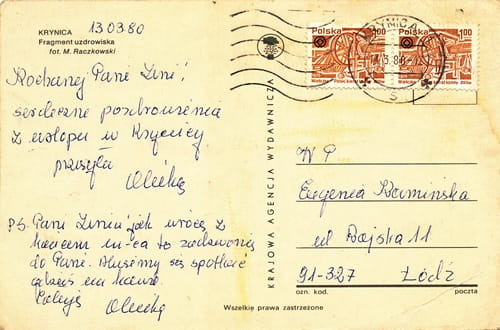 KRYNICA
Fragment uzdrowiska
fot. M. Raczkowski
130380
Kochanej Pani Zeni!
serdeczne pozdrowienia
z urlopu w Krynicy
przesyła
P.S. Pani Zeniu jak wrócę z
końcem m-ca to zadzwonię
do Pani. Musimy się spotkać
gdzieś na kawie.
KRAJOWA AGENCJA WYDAWNICZA
Polska
100
Polska
100
KRYNICA
W P
Eugenia Kamińska
ul Wojska 11
91-327 Łódź
ozn. kod. poczta
Wszelkie prawa zastrzeżone